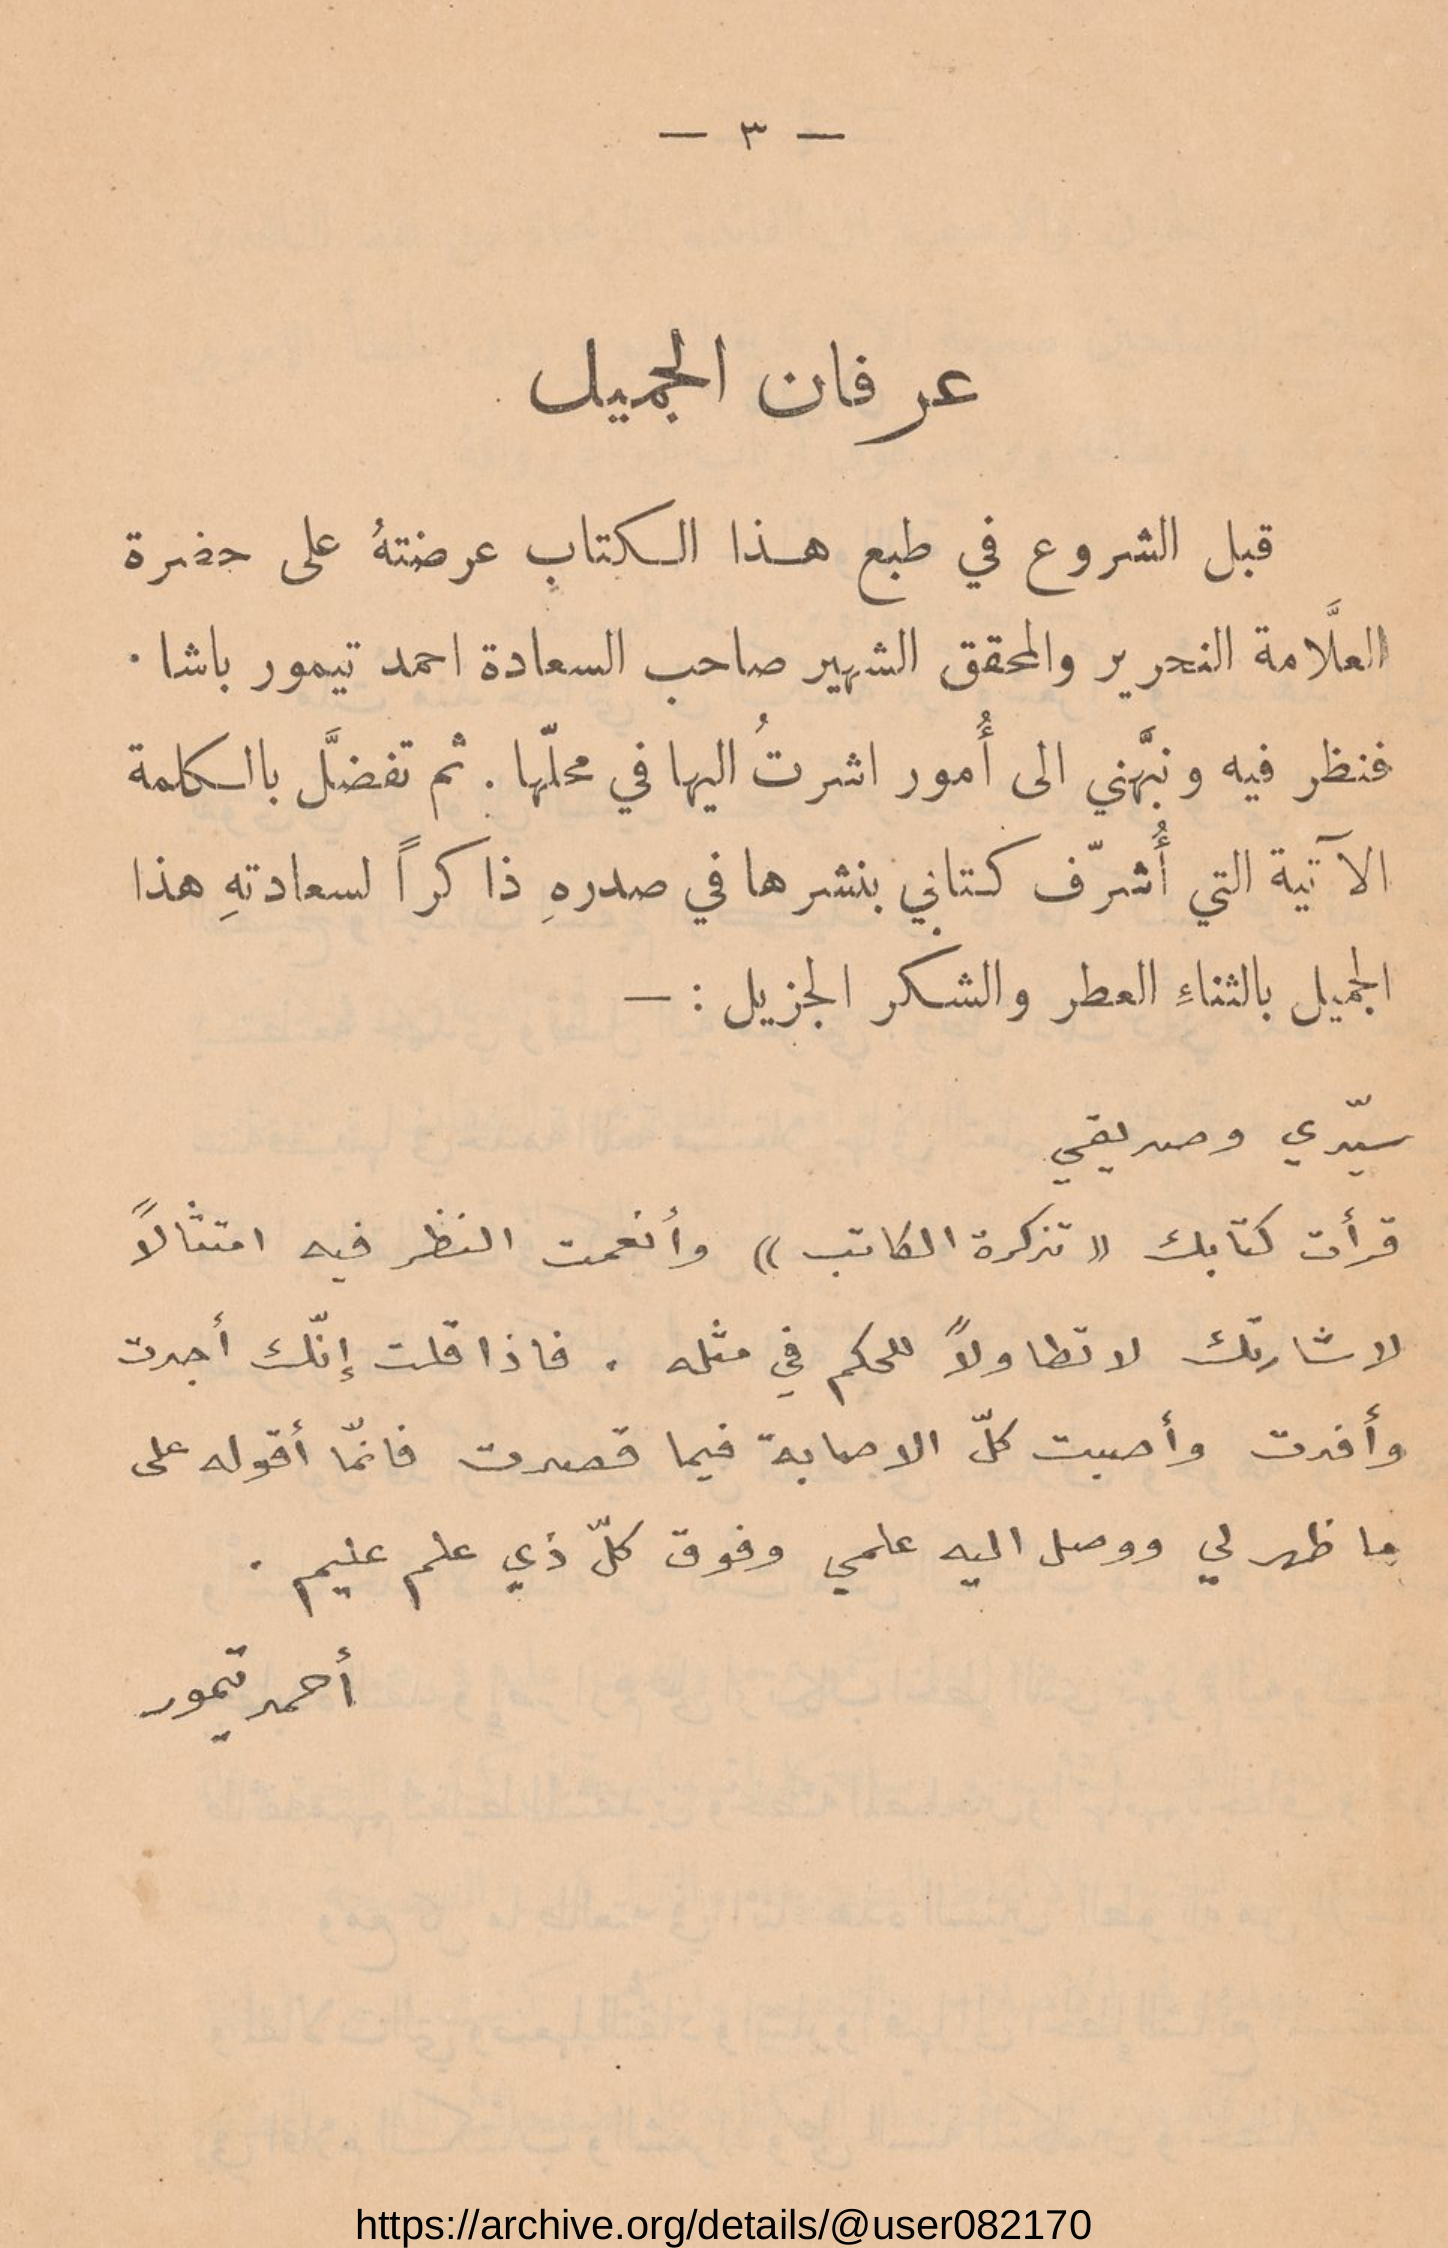 — ٣ —
عرفان الجميل
قبل الشروع في طبع هذا الكتابِ عرضتهُ على حضرة
العلَّامة النحرير والمحقق الشهير صاحب السعادة احمد تيمور باشا .
فنظر فيه ونبَّهني الى أُمور اشرتُ اليها في محلّها . ثم تفضَّل بالكلمة
الآتية التي أُشرّف كتابي بنشرها في صدرهِ ذاكراً لسعادتهِ هذا
الجميل بالثناءِ العطر والشكر الجزيل : —
سيّدي وصديقي
قرأت كتابك « تذكرة الكاتب » وأنعمت النظر فيه امتثالاً
لاشارتك لا تطاولاً للحكم في مثله . فاذا قلت إنّك أجدت
وأفدت وأصبت كلّ الاصابة فيما قصدت فانمّا أقوله على
ما ظهر لي ووصل اليه علمي وفوق كلّ ذي علم عليم .
أحمد تيمور
https://archive.org/details/@user082170